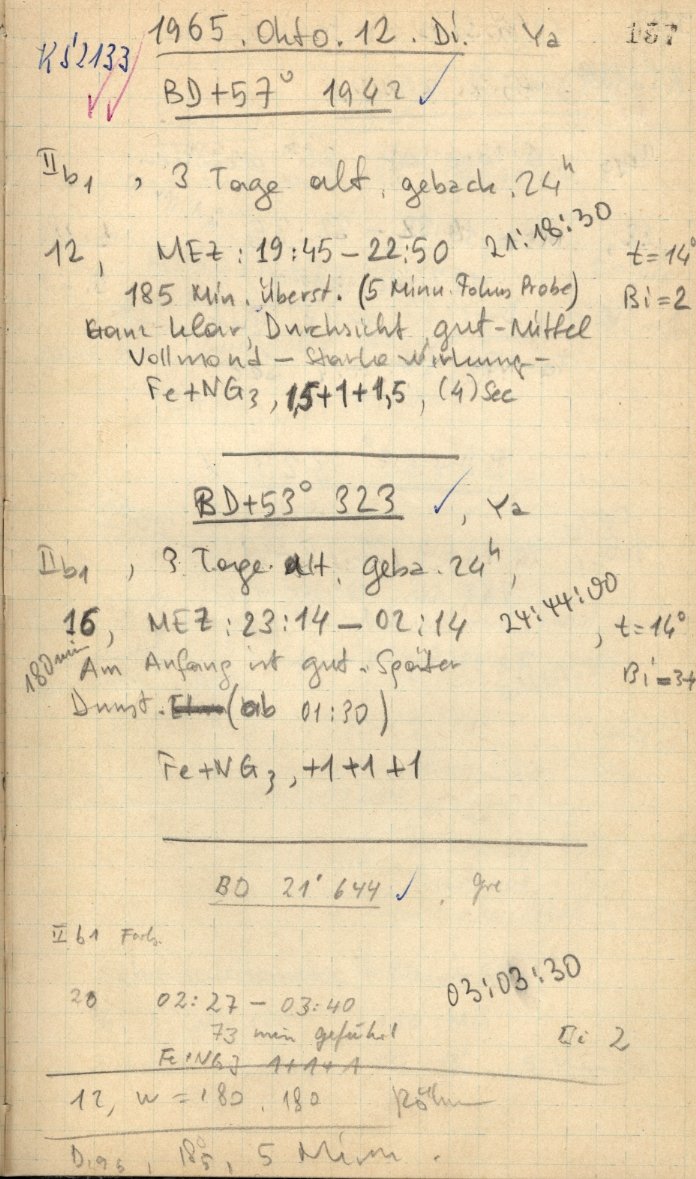 1965. Okto. 12. Di. Ya 167
KS2133
BD+57° 1942 ✓
IIb1, 3 Tage alt, geback. 24h
12, MEZ: 19:45–22:50 21:18:30 t=14°
185 Min. Überst. (5 Minu. Fokus Probe) Bi=2
Ganz klar, Durchsicht gut-Mittel
Vollmond – Starke Wirkung –
Fe+NG3, 1,5+1+1,5, (4) Sec
BD+53° 323 ✓, Ya
IIb1, 3 Tage alt, geba. 24h,
16, MEZ: 23:14 – 02:14 24:44:00, t=14°
180min Am Anfang ist gut. Später Bi=3+
Dunst. (ab 01:30)
Fe+NG3, +1+1+1
BD 21° 644 ✓, gre
IIb1 Farb.
20 02:27 – 03:40 03:03:30
73 min geführt Bi 2
Fe+NG3 1+1+1
12, w = 180, 180
5 Minu.